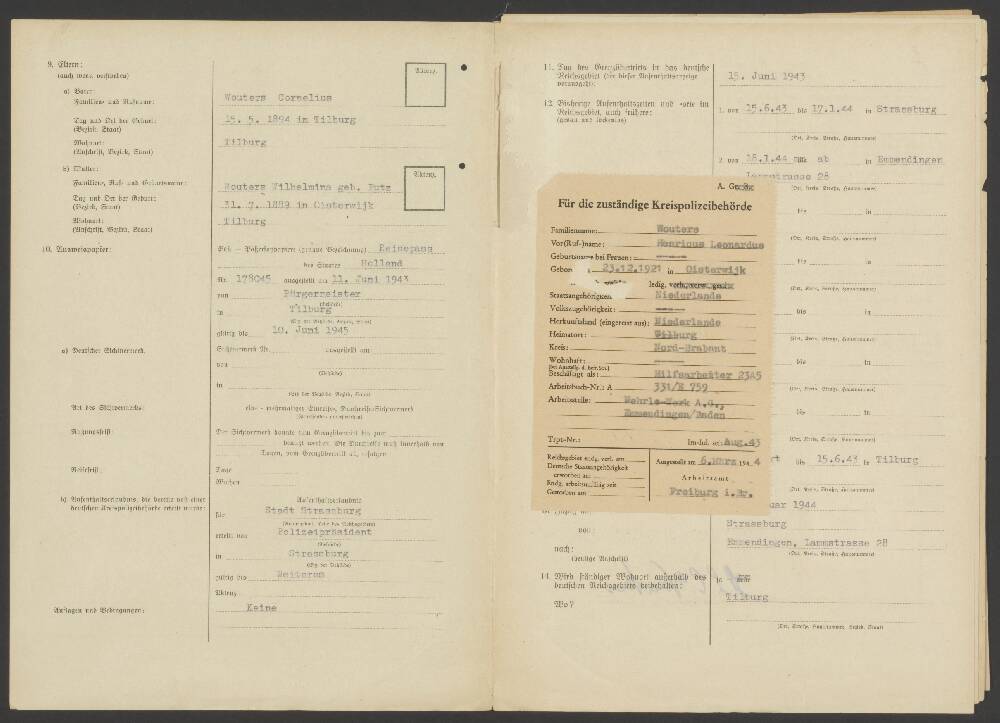 9. Eltern:
(auch wenn verstorben)
a) Vater:
Familien- und Rufname:
Wouters Cornelius
Aktenz.
Tag und Ort der Geburt:
(Bezirk, Staat)
15. 5. 1894 in Tilburg
Wohnort:
(Anschrift, Bezirk, Staat)
Tilburg
b) Mutter:
Familien-, Ruf- und Geburtsname:
Wouters Wilhelmina geb. Putz
Aktenz.
Tag und Ort der Geburt:
(Bezirk, Staat)
31. 7. 1889 in Oisterwijk
Wohnort:
(Anschrift, Bezirk, Staat)
Tilburg
10. Ausweispapier:
Reisepass
des Staates Holland
Nr. 178045 ausgestellt am 11. Juni 1943
von Bürgermeister
(Behörde)
in Tilburg
gültig bis 10. Juni 1945
a) Deutscher Sichtvermerk
Sichtvermerk Nr. ausgestellt am
von
(Behörde)
in
(Sitz der Behörde, Bezirk, Staat)
Art des Sichtvermerks:
Nutzungsfrist:
Der Sichtvermerk konnte zum Grenzübertritt bis zum
benutzt werden. Die Durchreise muß innerhalb von
Tagen, vom Grenzübertritt ab, erfolgen
Reisefrist:
Tage
Wochen
b) Aufenthaltserlaubnis, die bereits von einer
deutschen Kreispolizeibehörde erteilt wurde:
Aufenthaltserlaubnis
für Stadt Strassburg
erteilt von Polizeipräsident
(Behörde)
in Strassburg
(Sitz der Behörde)
gültig bis Weiteres
Aktenz.
Auflagen und Bedingungen:
Keine
11. Tag des Grenzübertritts in das deutsche
Reichsgebiet (der dieser Aufenthaltsanzeige
vorausgeht):
15. Juni 1943
12. Bisherige Aufenthaltszeiten und -orte im
Reichsgebiet, auch frühere:
(genau und lückenlos)
1. von 15.6.43 bis 17.1.44 in Strassburg
(Ort, Kreis, Straße, Hausnummer)
2. von 18.1.44 ab in Emmendingen
Lammstrasse 28
(Ort, Kreis, Straße, Hausnummer)
bis in
(Ort, Kreis, Straße, Hausnummer)
bis in
(Ort, Kreis, Straße, Hausnummer)
bis in
(Ort, Kreis, Straße, Hausnummer)
bis in
(Ort, Kreis, Straße, Hausnummer)
bis in
(Ort, Kreis, Straße, Hausnummer)
bis in
(Ort, Kreis, Straße, Hausnummer)
bis 15.6.43 in Tilburg
(Ort, Kreis, Straße, Hausnummer)
uar 1944
von:
Strassburg
nach:
(heutige Anschrift)
Emmendingen, Lammstrasse 28
(Ort, Kreis, Straße, Hausnummer)
14. Wird ständiger Wohnort außerhalb des
deutschen Reichsgebiets beibehalten:
ja
Wo?
Tilburg
(Ort, Straße, Hausnummer, Bezirk, Staat)
Für die zuständige Kreispolizeibehörde
Familienname: Wouters
Vor(Ruf-)name: Henricus Leonardus
Geburtsname bei Frauen:
Gebor 23.12.1921 in Oisterwijk
ledig, verh., verw., gesch.
Staatsangehörigkeit Niederlande
Volkszugehörigkeit:
Herkunftsland (eingereist aus): Niederlande
Heimatort: Tilburg
Kreis: Nord-Brabant
Wohnhaft:
Beschäftigt als: Hilfsarbeiter 23A5
Arbeitsbuch-Nr.: A 331/E 759
Arbeitsstelle: Wehrle-Werk A.G.,
Emmendingen/Baden
Trpt-Nr.: Aug.43
Reichsgebiet endg. verl. am
Deutsche Staatsangehörigkeit
erworben am
Endg. arbeitsunfähig seit
Gestorben am
Ausgestellt am 6. März 1944
Arbeitsamt
Freiburg i. Br.